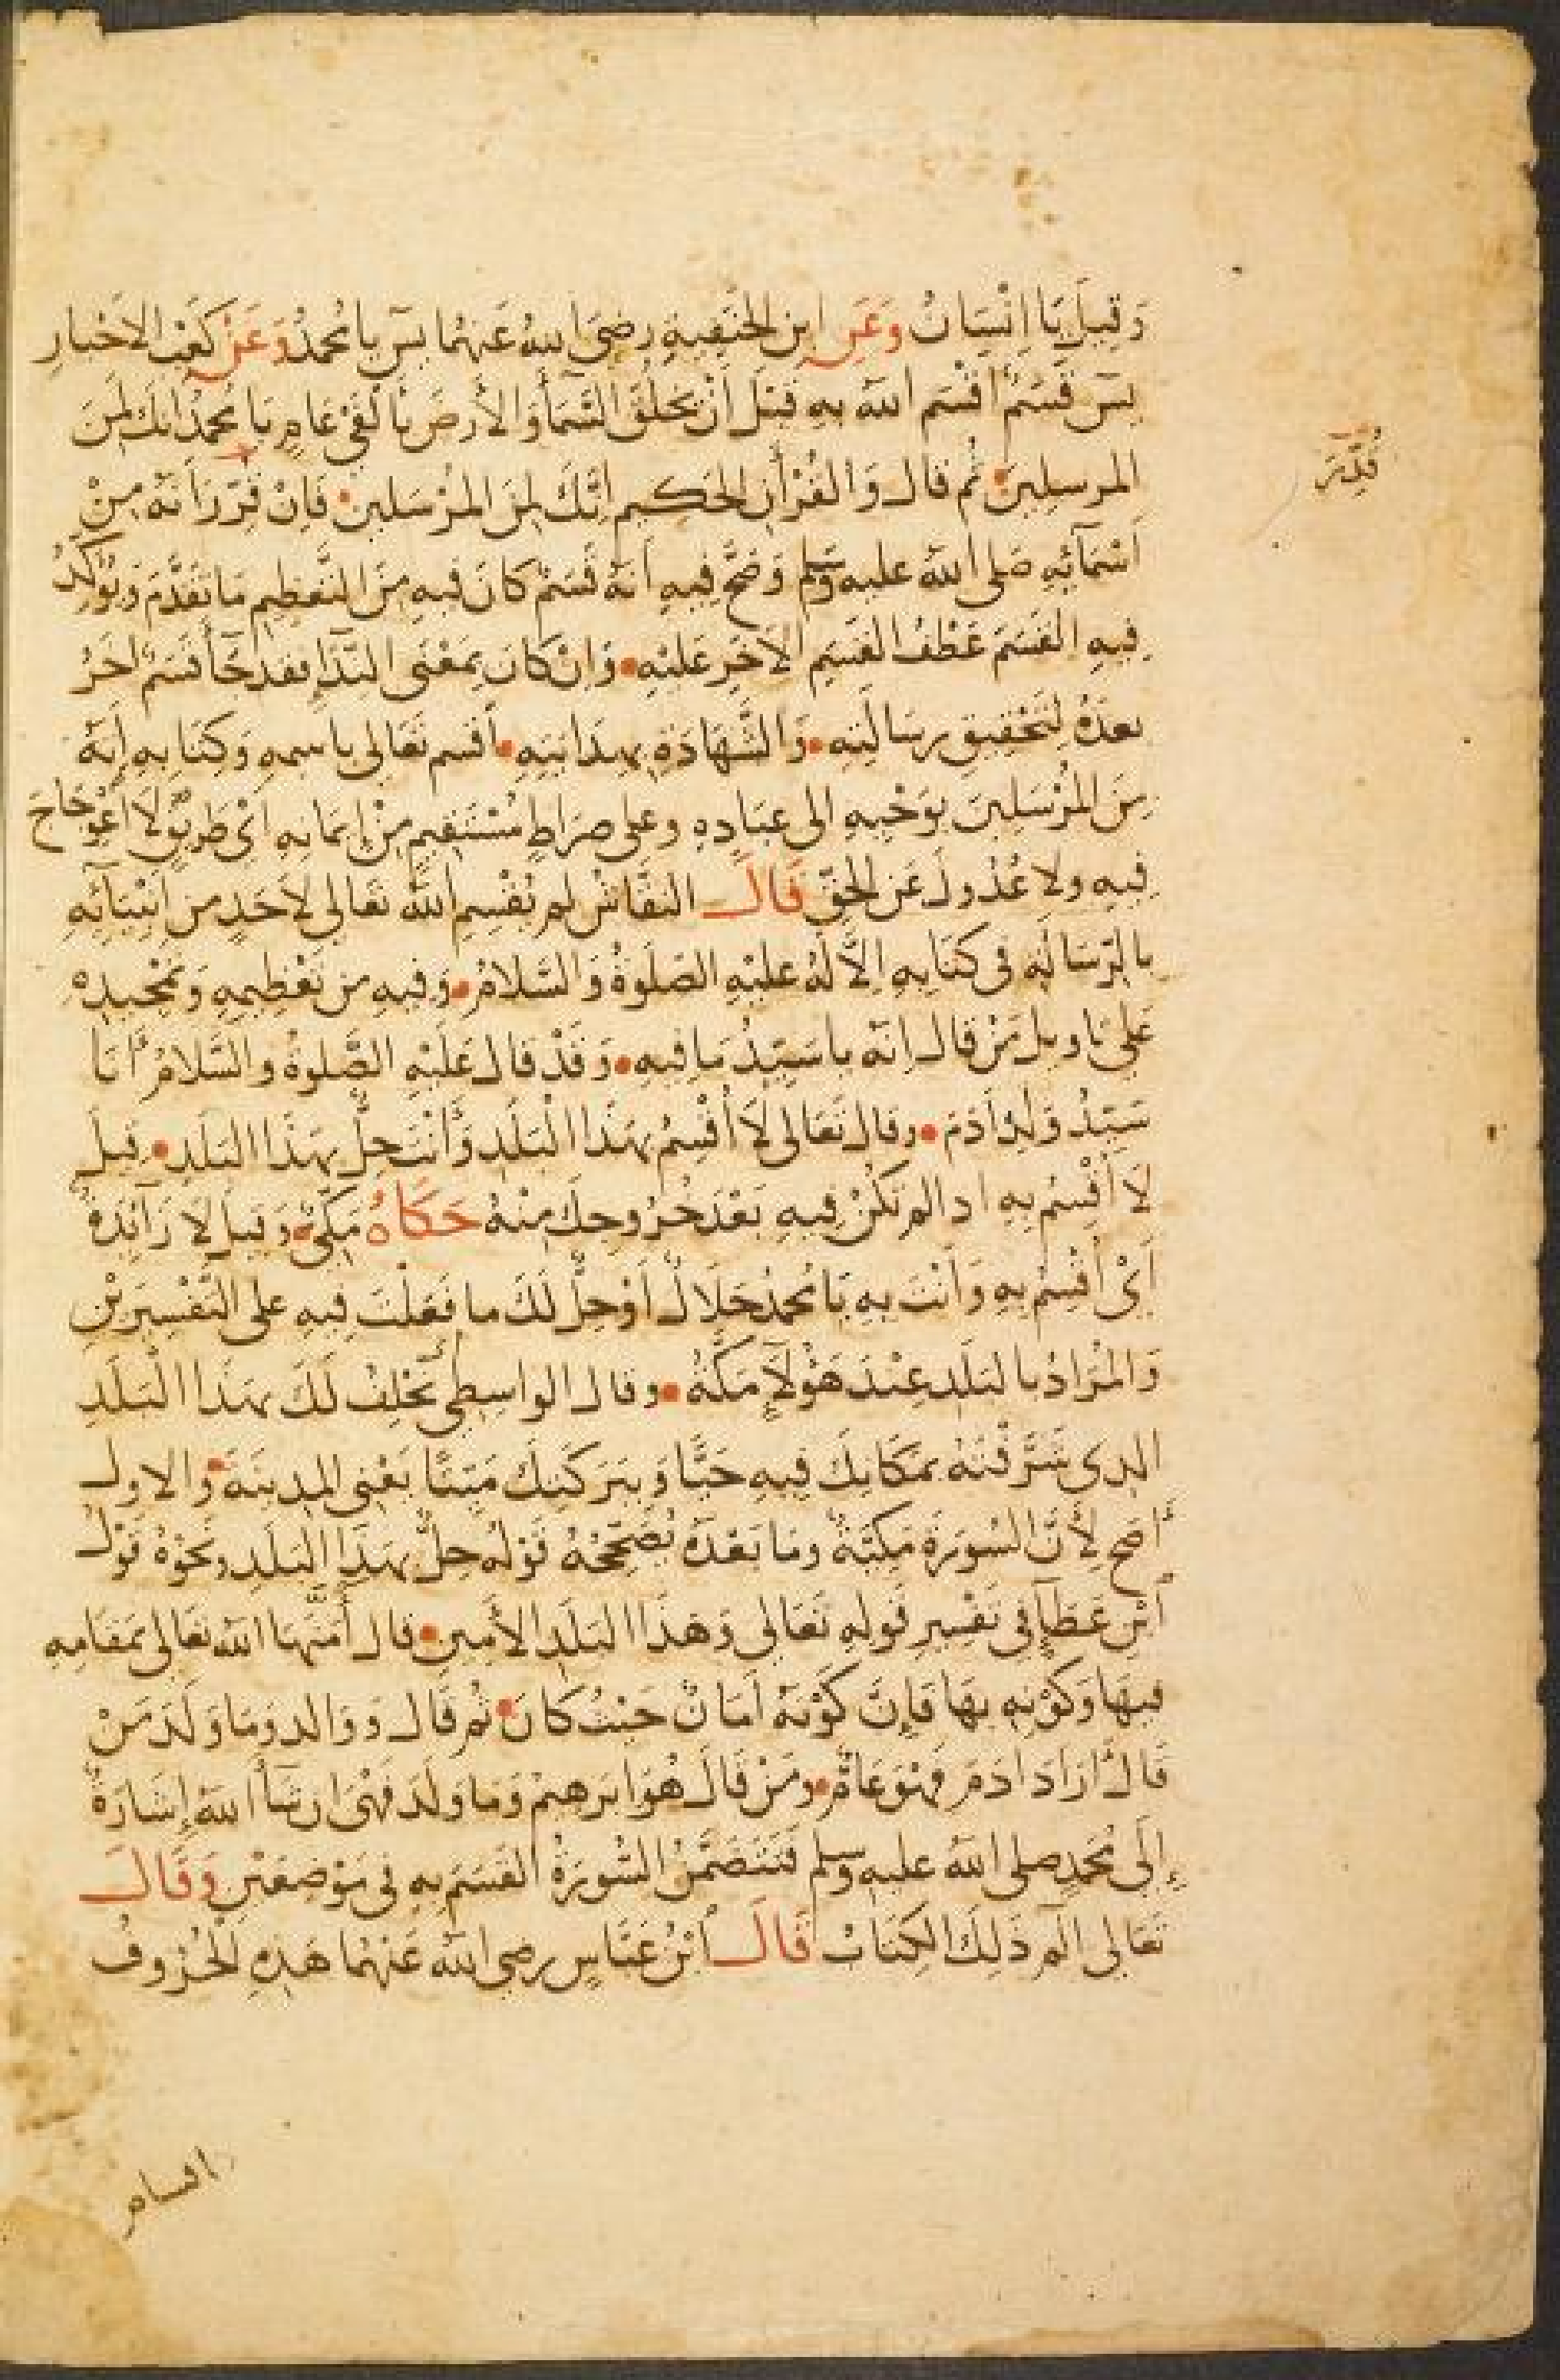 وَقِيلَ يَا اِنْسَانُ وَعَنِ ابنِ الحَنَفِيةِ رضِىَ اللهُ عَنهُما يسٓ يا مُحمدُ وَعَنْ كَعْبِ الاَحْبارِ
يسٓ قَسَمٌ اَقْسَم اللهُ بهِ قَبْلَ اَنْ يَخلُقَ السَّمَآءَ وَالاَرضَ بِاَلْفَىْ عَامٍ يَا مُحمدُ اِنكَ لمَنَ
المرسلِينَ ثُم قال وَالقُرْآنِ الحَكيمِ اِنَّكَ لمِنَ المُرْسَلينَ فَاِنْ قُرّرَ اَنهُ مِنْ
قُدِّرَ
اَسْمَآئِهِ صَلى اللهُ عليه وسلم وَصَحَّ فِيهِ اَنهُ قَسَمٌ كانَ فيهِ مِنَ التَّعظِيمِ مَا تَقَدَّمَ وَيُؤَكِّدُ
فِيهِ القَسَمَ عَطْفُ القَسَمِ الاٰخَرِ عَليْهِ وَاِنْ كانَ بِمَعْنَى النِّدَآءِ فقد جَآءَ قَسَمٌ اٰخَرُ
بعدَهُ لِتَحْقِيقِ رِسَالَتِه وَالشَّهَادَةِ بِهِدَايَتِهِ اَقسم تَعَالى باسمهِ وَكِتَابِهِ اِنَّهُ
مِنَ المُرْسَلِينَ بِوَحْيِهِ الى عِبَادِهِ وعلى صِرَاطٍ مُسْتَقِيمٍ مِنْ اِيمَانِهِ اَىْ طَرِيقٍ لَا اعْوِجَاجَ
فِيهِ ولا عُدُولَ عَنِ الحَقِّ قَالَ النقَّاشُ لم يُقْسِمِ اللهُ تَعَالى لاَحَدٍ من اَنْبيَآئِهِ
بالرّسَالَةِ فى كتَابِهِ اِلاَّ لهُ عليْهِ الصَلَوةُ وَالسَّلامُ وَفيهِ من تَعْظِيمِهِ وَتَمْجِيدِهِ
عَلى تاويلِ مَنْ قال اِنهُ يا سَيِّدُ مَا فيهِ وَقَدْ قال عَلَيْهِ الصَّلوةُ والسَّلامُ اَنَا
سَيّدُ وَلَدِ اٰدَمَ وقال تَعَالى لَا اُقْسِمُ بِهَذَا الْبَلَدِ وَاَنْتَ حِلٌّ بِهَذَا البَلَدِ قِيلَ
لَا اُقْسِمُ بهِ اذا لمْ تَكُنْ فِيهِ بَعْدَ خُرُوجِكَ مِنْهُ حَكَاهُ مَكّىٌّ وَقيلَ لَا زَآئِدَةٌ
اَىْ اُقْسِمُ بِهِ وَاَنْتَ بِهِ يَا مُحمدُ حَلَالٌ اَوْ حِلٌّ لَكَ ما فَعَلْتَ فِيهِ على التَّفْسِيرَيْنِ
وَالمُرَادُ بالبَلَدِ عِنْدَ هَؤُلَآءِ مَكَّةُ وقال الواسِطِى يَحْلِفُ لَكَ بِهَذَا البَلَدِ
الذى شَرَّفْتَهُ بمَكَانِكَ فِيهِ حَيًّا وَبِبَرَكَتِكَ مَيّتًا يَعْنى المدِينَةَ وَالاول
اَصَح لِاَنَّ السُورَةَ مَكيّةٌ وَمَا بَعْدَهُ يُصَحِّحُهُ قَوْلهُ حِلٌّ بِهَذَا البَلَدِ ونَحْوُهُ قَوْلُ
اَبْنِ عَطَآءٍ فى تَفْسِيرِ قَولهِ تَعَالى وَهَذَا البَلَدِ الاَمينِ قال اَمَّنَهَا الله تعَالى بمَقَامِهِ
فيهَا وَكَوْنِهِ بِهَا فَاِنَّ كَوْنَهُ اَمَانٌ حَيْثُ كانَ ثم قَال وَوَالد وَمَا وَلَدَ مَنْ
قَالَ اَرَادَ اٰدَمَ فَهْوَ عَامٌّ ومَنْ قَالَ هُوَ ابرَهيمُ وَمَا وَلَدَ فَهْىَ ان شَآءَ اللهُ اِشَارَةٌ
اِلَى مُحَمدٍ صلى اللهُ عليه وسلم فَتَتَضَمَّنُ السُّورَةُ القَسَمَ بِهِ فى مَوْضِعَيْنِ وَقَالَ
تَعَالى الٓم ذَلِكَ الكِتَابُ قَالَ اَبْنُ عَبَّاسٍ رضى اللهُ عَنْهُمَا هَذِهِ الْحُرُوفُ
اقسام